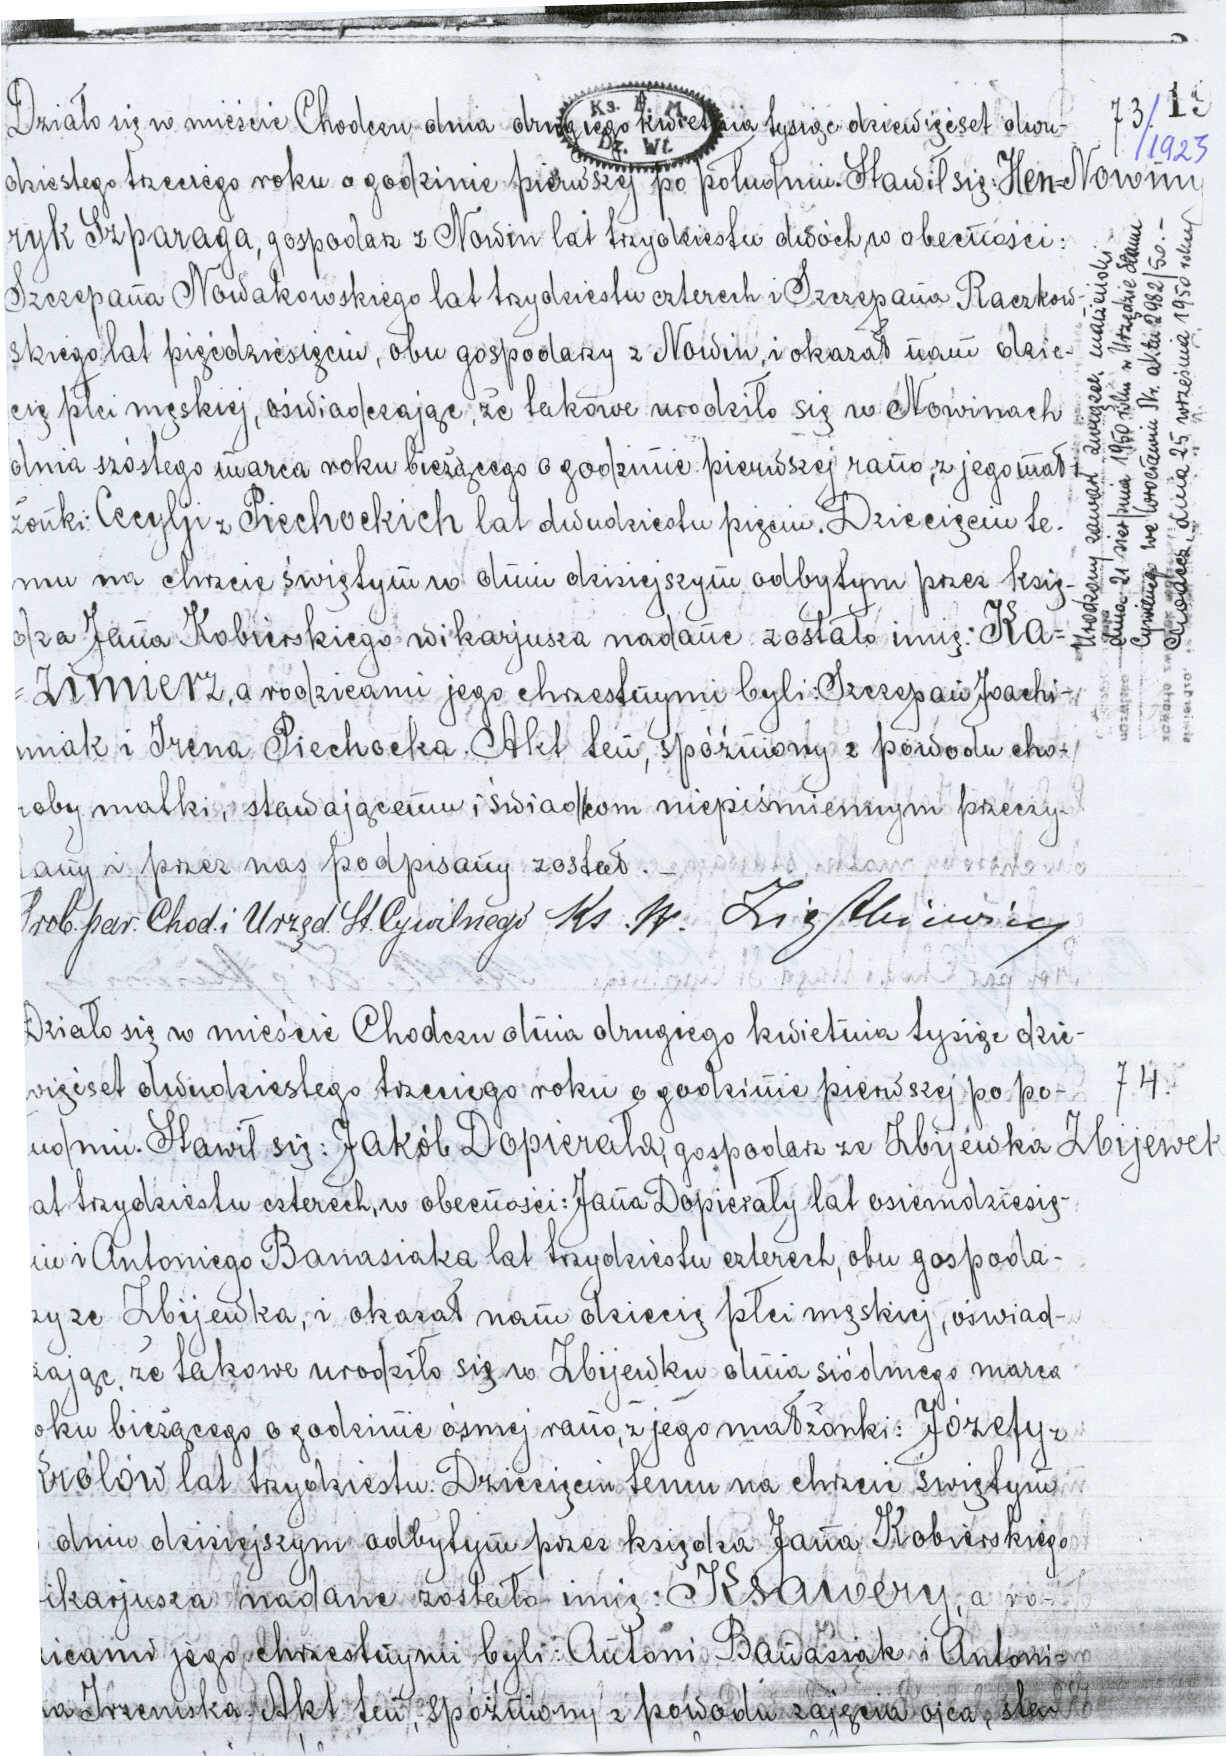 Ks. A. M.
Dz. Wł.
73/
1923
Nowiny
Działo się w mieście Chodczu dnia drugiego kwietnia tysiąc dziewięćset dwu-
dziestego trzeciego roku o godzinie pierwszej po południu. Stawił się: Hen=
ryk Szparaga, gospodarz z Nowin lat trzydziestu dwóch, w obecności:
Szczepana Nowakowskiego lat trzydziestu czterech i Szczepana Raczkow-
skiego lat pięćdziesięciu, obu gospodarzy z Nowin, i okazał nam dzie-
cię płci męskiej, oświadczając, że takowe urodziło się w Nowinach
dnia szóstego marca roku bieżącego o godzinie pierwszej rano, z jego mał-
żonki: Cecylji z Piechockich lat dwudziestu pięciu. Dziecięciu te-
mu na chrzcie świętym w dniu dzisiejszym odbytym przez księ-
dza Jana Kobierskiego wikarjusza nadane zostało imię: Ka=
=zimierz, a rodzicami jego chrzestnymi byli: Szczepan Joachi-
miak i Irena Piechocka. Akt ten, spóźniony z powodu cho-
roby matki, stawającemu i świadkom niepiśmiennym przeczy-
tany i przez nas podpisany został.
Prob. par. Chod. i Urzęd. St. Cywilnego Ks. W.
Urodzony zawarł związek małżeński
dnia 21 sierpnia 1950 roku w Urzędzie Stanu
Cywilnego we Wrocławiu Nr. aktu 2982/50.-
Chodecz, dnia 25 września 1950 roku
74.
Zbijewek
Działo się w mieście Chodczu dnia drugiego kwietnia tysiąc dzie-
więćset dwudziestego trzeciego roku o godzinie pierwszej po po-
łudniu. Stawił się: Jakób Dopierała, gospodarz ze Zbijewka
lat trzydziestu czterech, w obecności: Jana Dopierały lat osiemdziesię-
ciu i Antoniego Banasiaka lat trzydziestu czterech, obu gospoda-
rzy ze Zbijewka, i okazał nam dziecię płci męskiej, oświad-
czając, że takowe urodziło się w Zbijewku dnia siódmego marca
roku bieżącego o godzinie ósmej rano, z jego małżonki: Józefy z
Królów lat trzydziestu. Dziecięciu temu na chrzcie świętym
w dniu dzisiejszym odbytym przez księdza Jana Kobierskiego
wikarjusza nadane zostało imię: Ksawery, a ro-
dzicami jego chrzestnymi byli: Antoni Banasiak i Antoni=
na Trzemska. Akt ten, spóźniony z powodu zajęcia ojca, staw